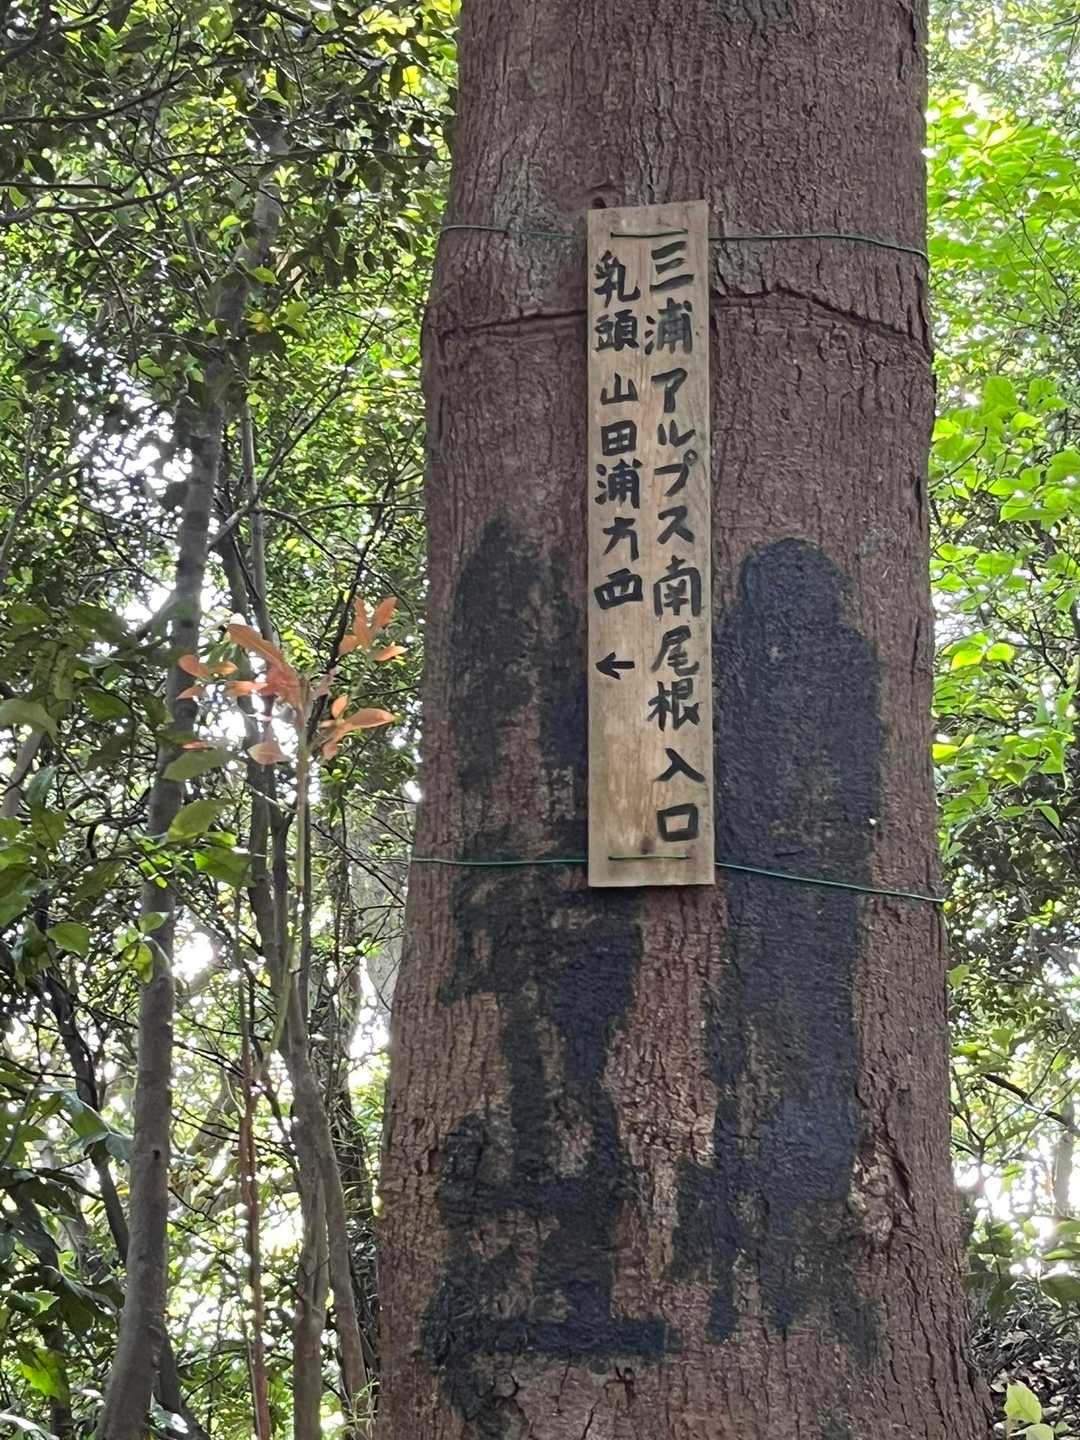 三浦アルプス南尾根入口
乳頭山田浦方西←